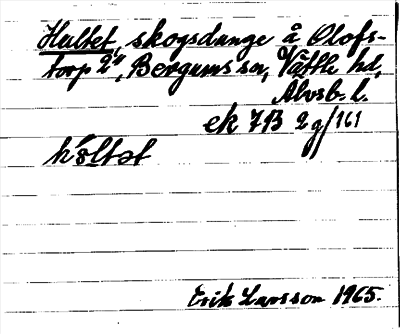 Hultet, skogsdunge å Olofs-
torp 2⁴, Bergums sn, Vättle hd,
Älvsb. l.
ek 7B 2g/161
hɷ́ltət
Erik Larsson 1965.